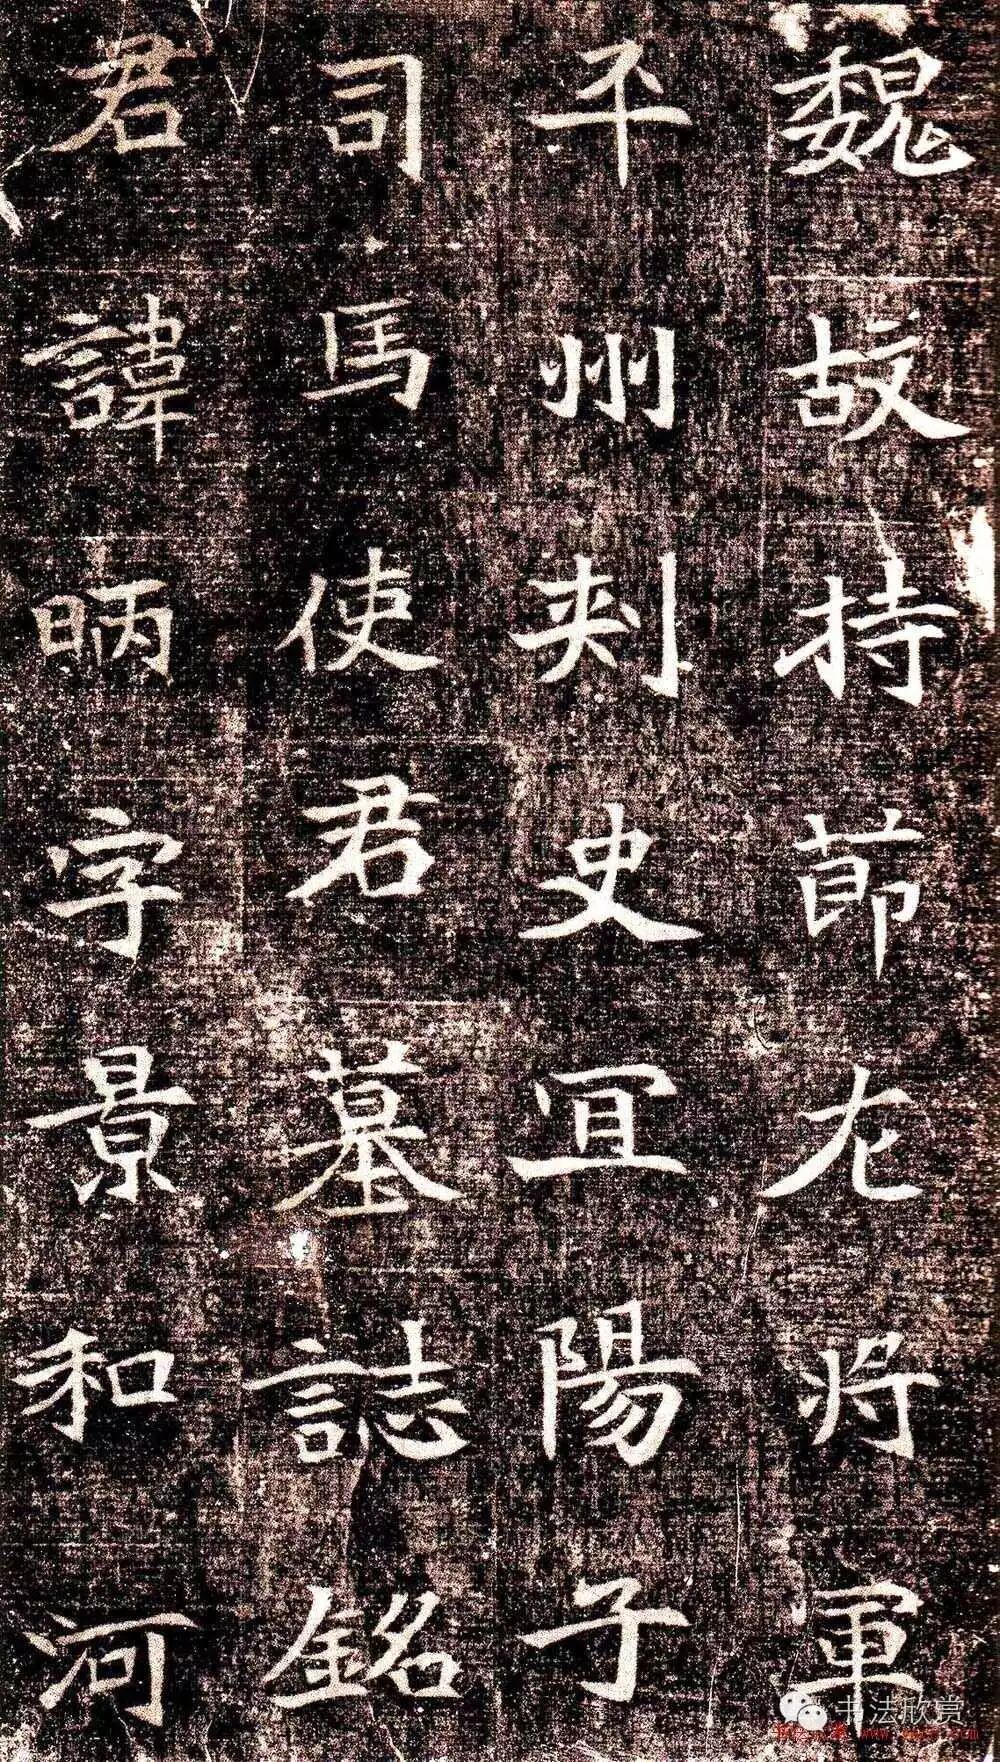 魏故持節左將軍
平州刺史宜陽子
司馬使君墓誌銘
君諱昞字景和河
书法欣赏